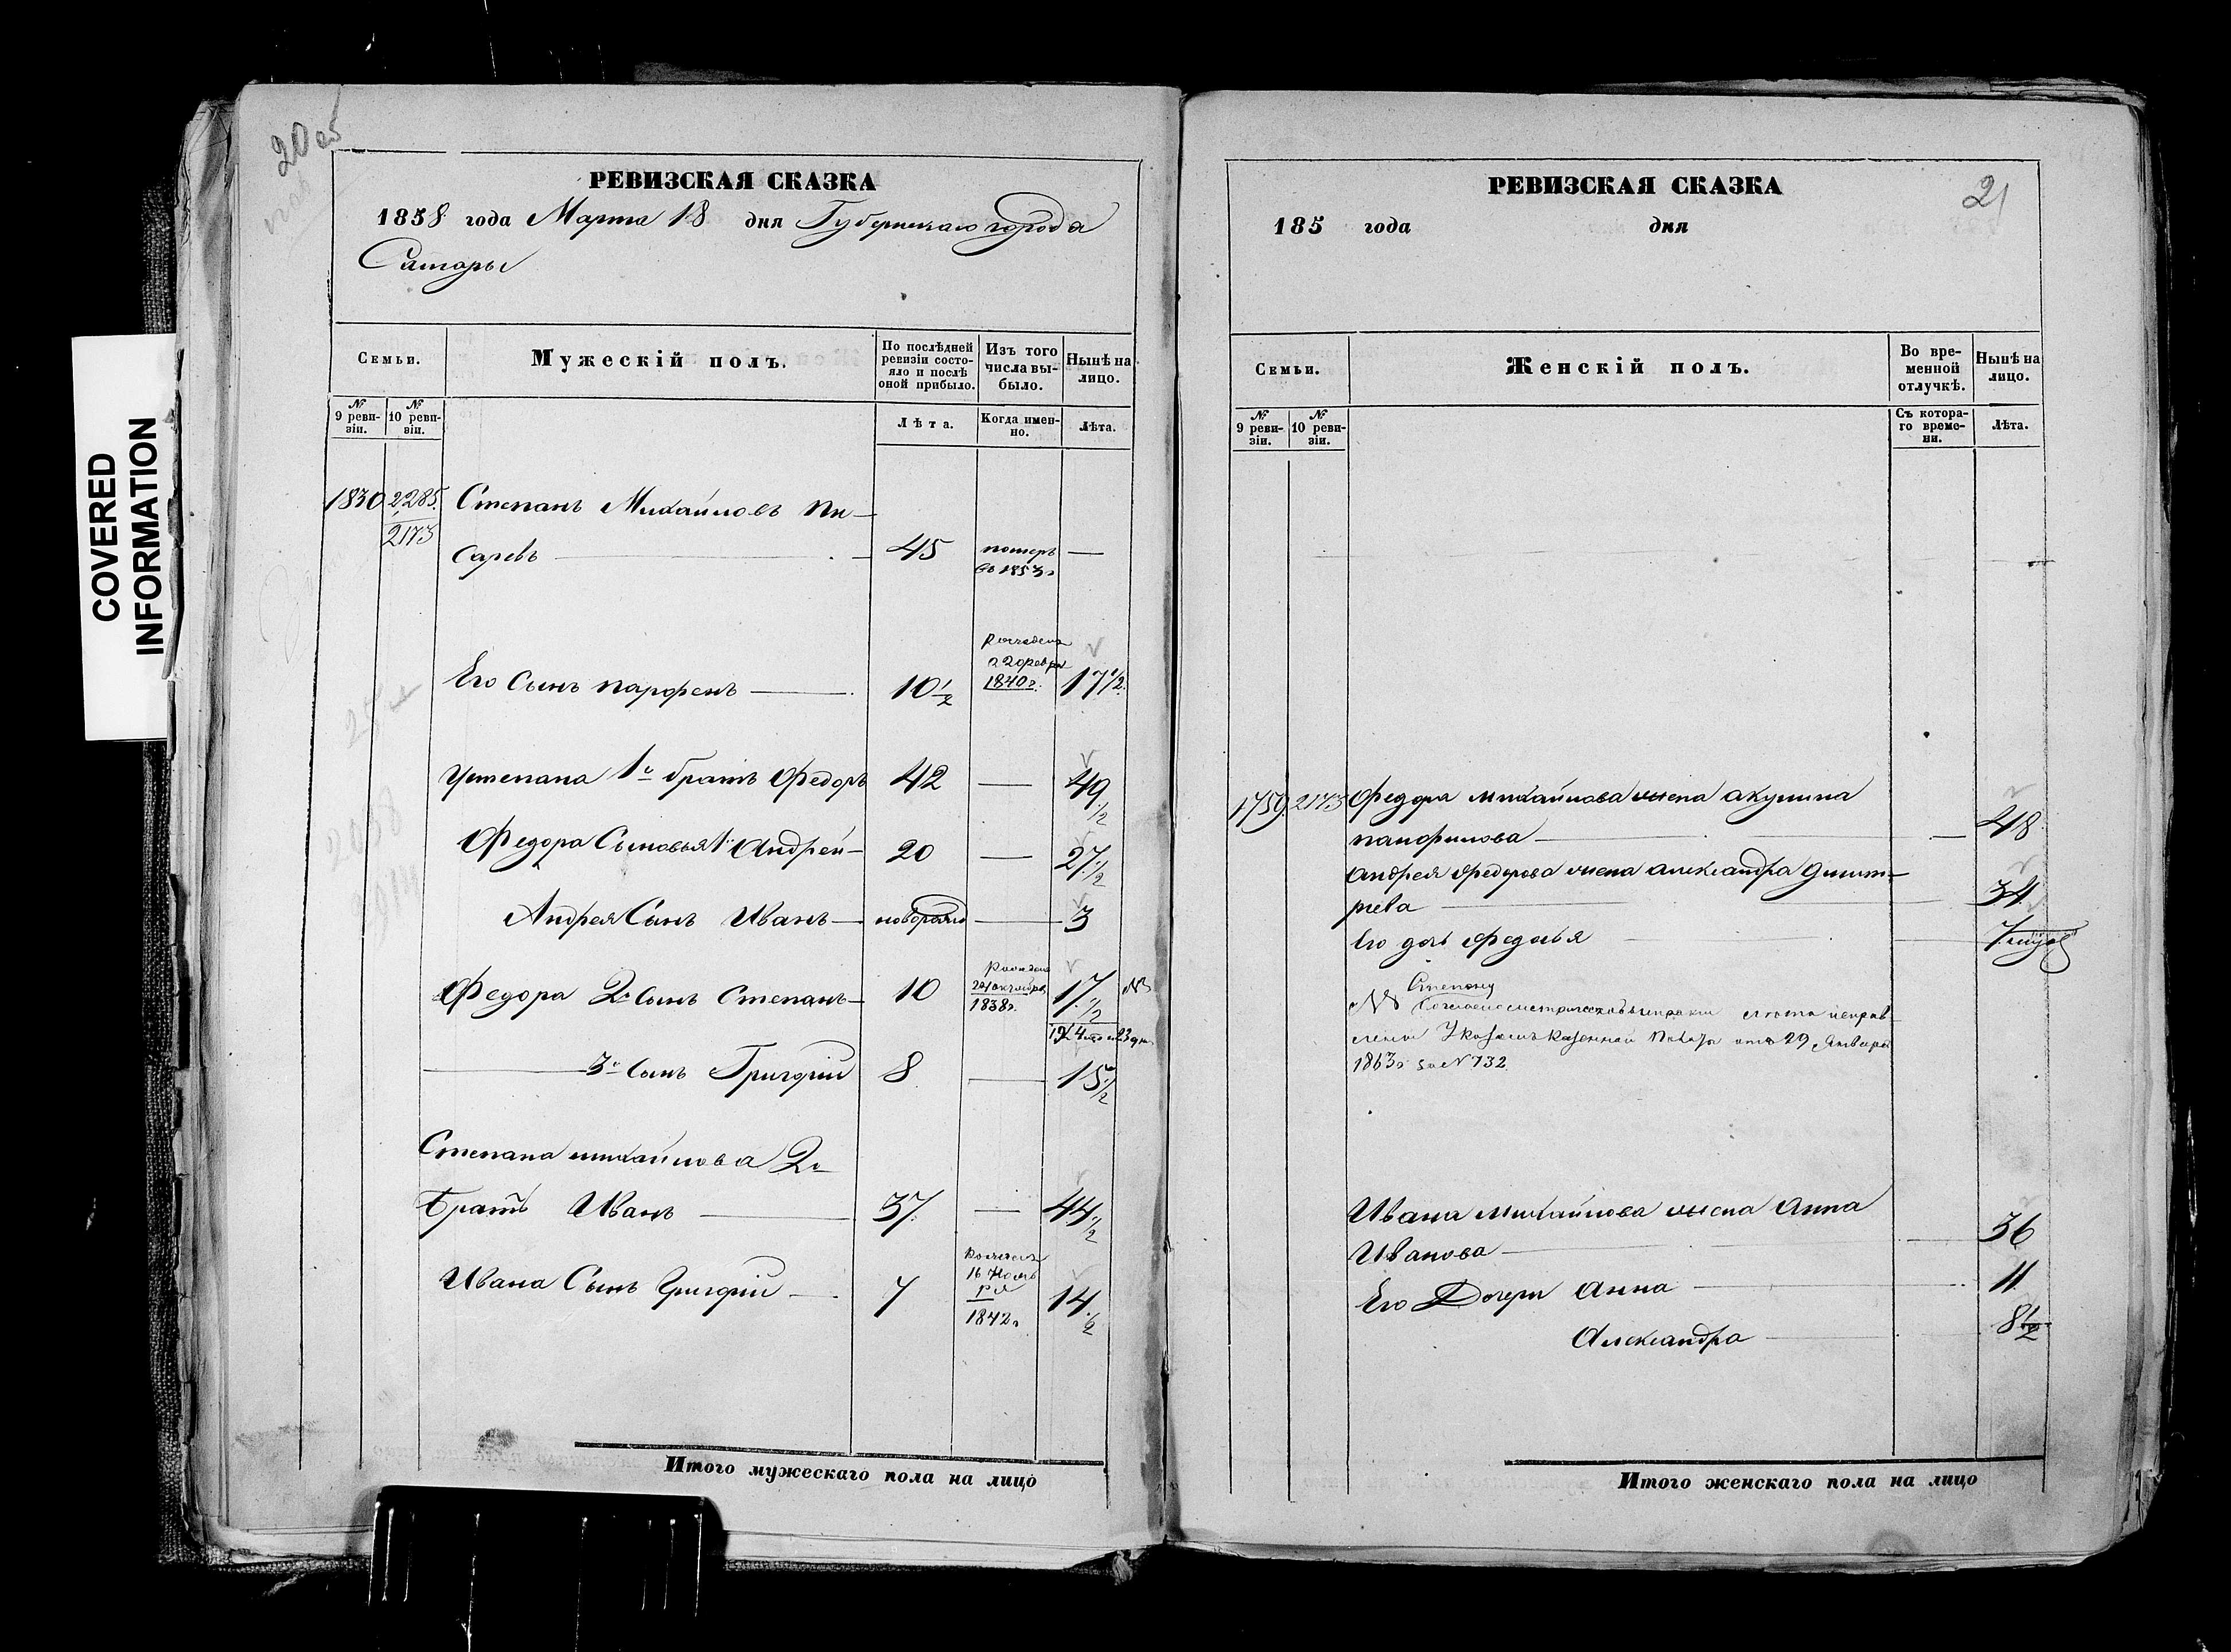 COVERED
INFORMATION
20 об
РЕВИЗСКАЯ СКАЗКА
1858 года Марта 18 дня Губернскаго города
Самары
Семьи.
Мужескій полъ.
По послѣдней ревизіи состояло и послѣ оной прибыло.
Изъ того числа выбыло.
Нынѣ на лицо.
№ 9 ревизіи.
№ 10 ревизіи.
Лѣта.
Когда именно.
Лѣта.
1830 2285 Степанъ Михайловъ Пи-
2173
саревъ 45 померъ въ 1853 г
Его Сынъ Парфенъ 10 1/2 1840 г. 17 1/2
Устепана 1й братъ Федоръ 42 — 49 1/2
Федора Сыновья 1й Андрей 20 — 27 1/2
Андрея Сынъ Иванъ — 3
Федора 2й Сынъ Степанъ 10 24 октября 1838 г. 17 1/2 NB
3й Сынъ Григорій 8 — 15 1/2
Степана михайлова 2й
братъ Иванъ 37 — 44 1/2
Ивана Сынъ Григорій 7 16 1842 г 14 1/2
Итого мужескаго пола на лицо
РЕВИЗСКАЯ СКАЗКА
21
185 года дня
Семьи.
Женскій полъ.
Во временной отлучкѣ.
Нынѣ на лицо.
№ 9 ревизіи.
№ 10 ревизіи.
Съ котораго времени.
Лѣта.
1759 2173 Федора михайлова жена акулина
панфилова 48
андрея федорова жена александра дмит-
риева 34
Его дочь федосья 7
NB Степану
Казенной Палаты отъ 29 Января
1863 г за № 732
Ивана михайлова жена Анна
Иванова 36
Его Дочери Анна 11
Александра 8 1/2
Итого женскаго пола на лицо